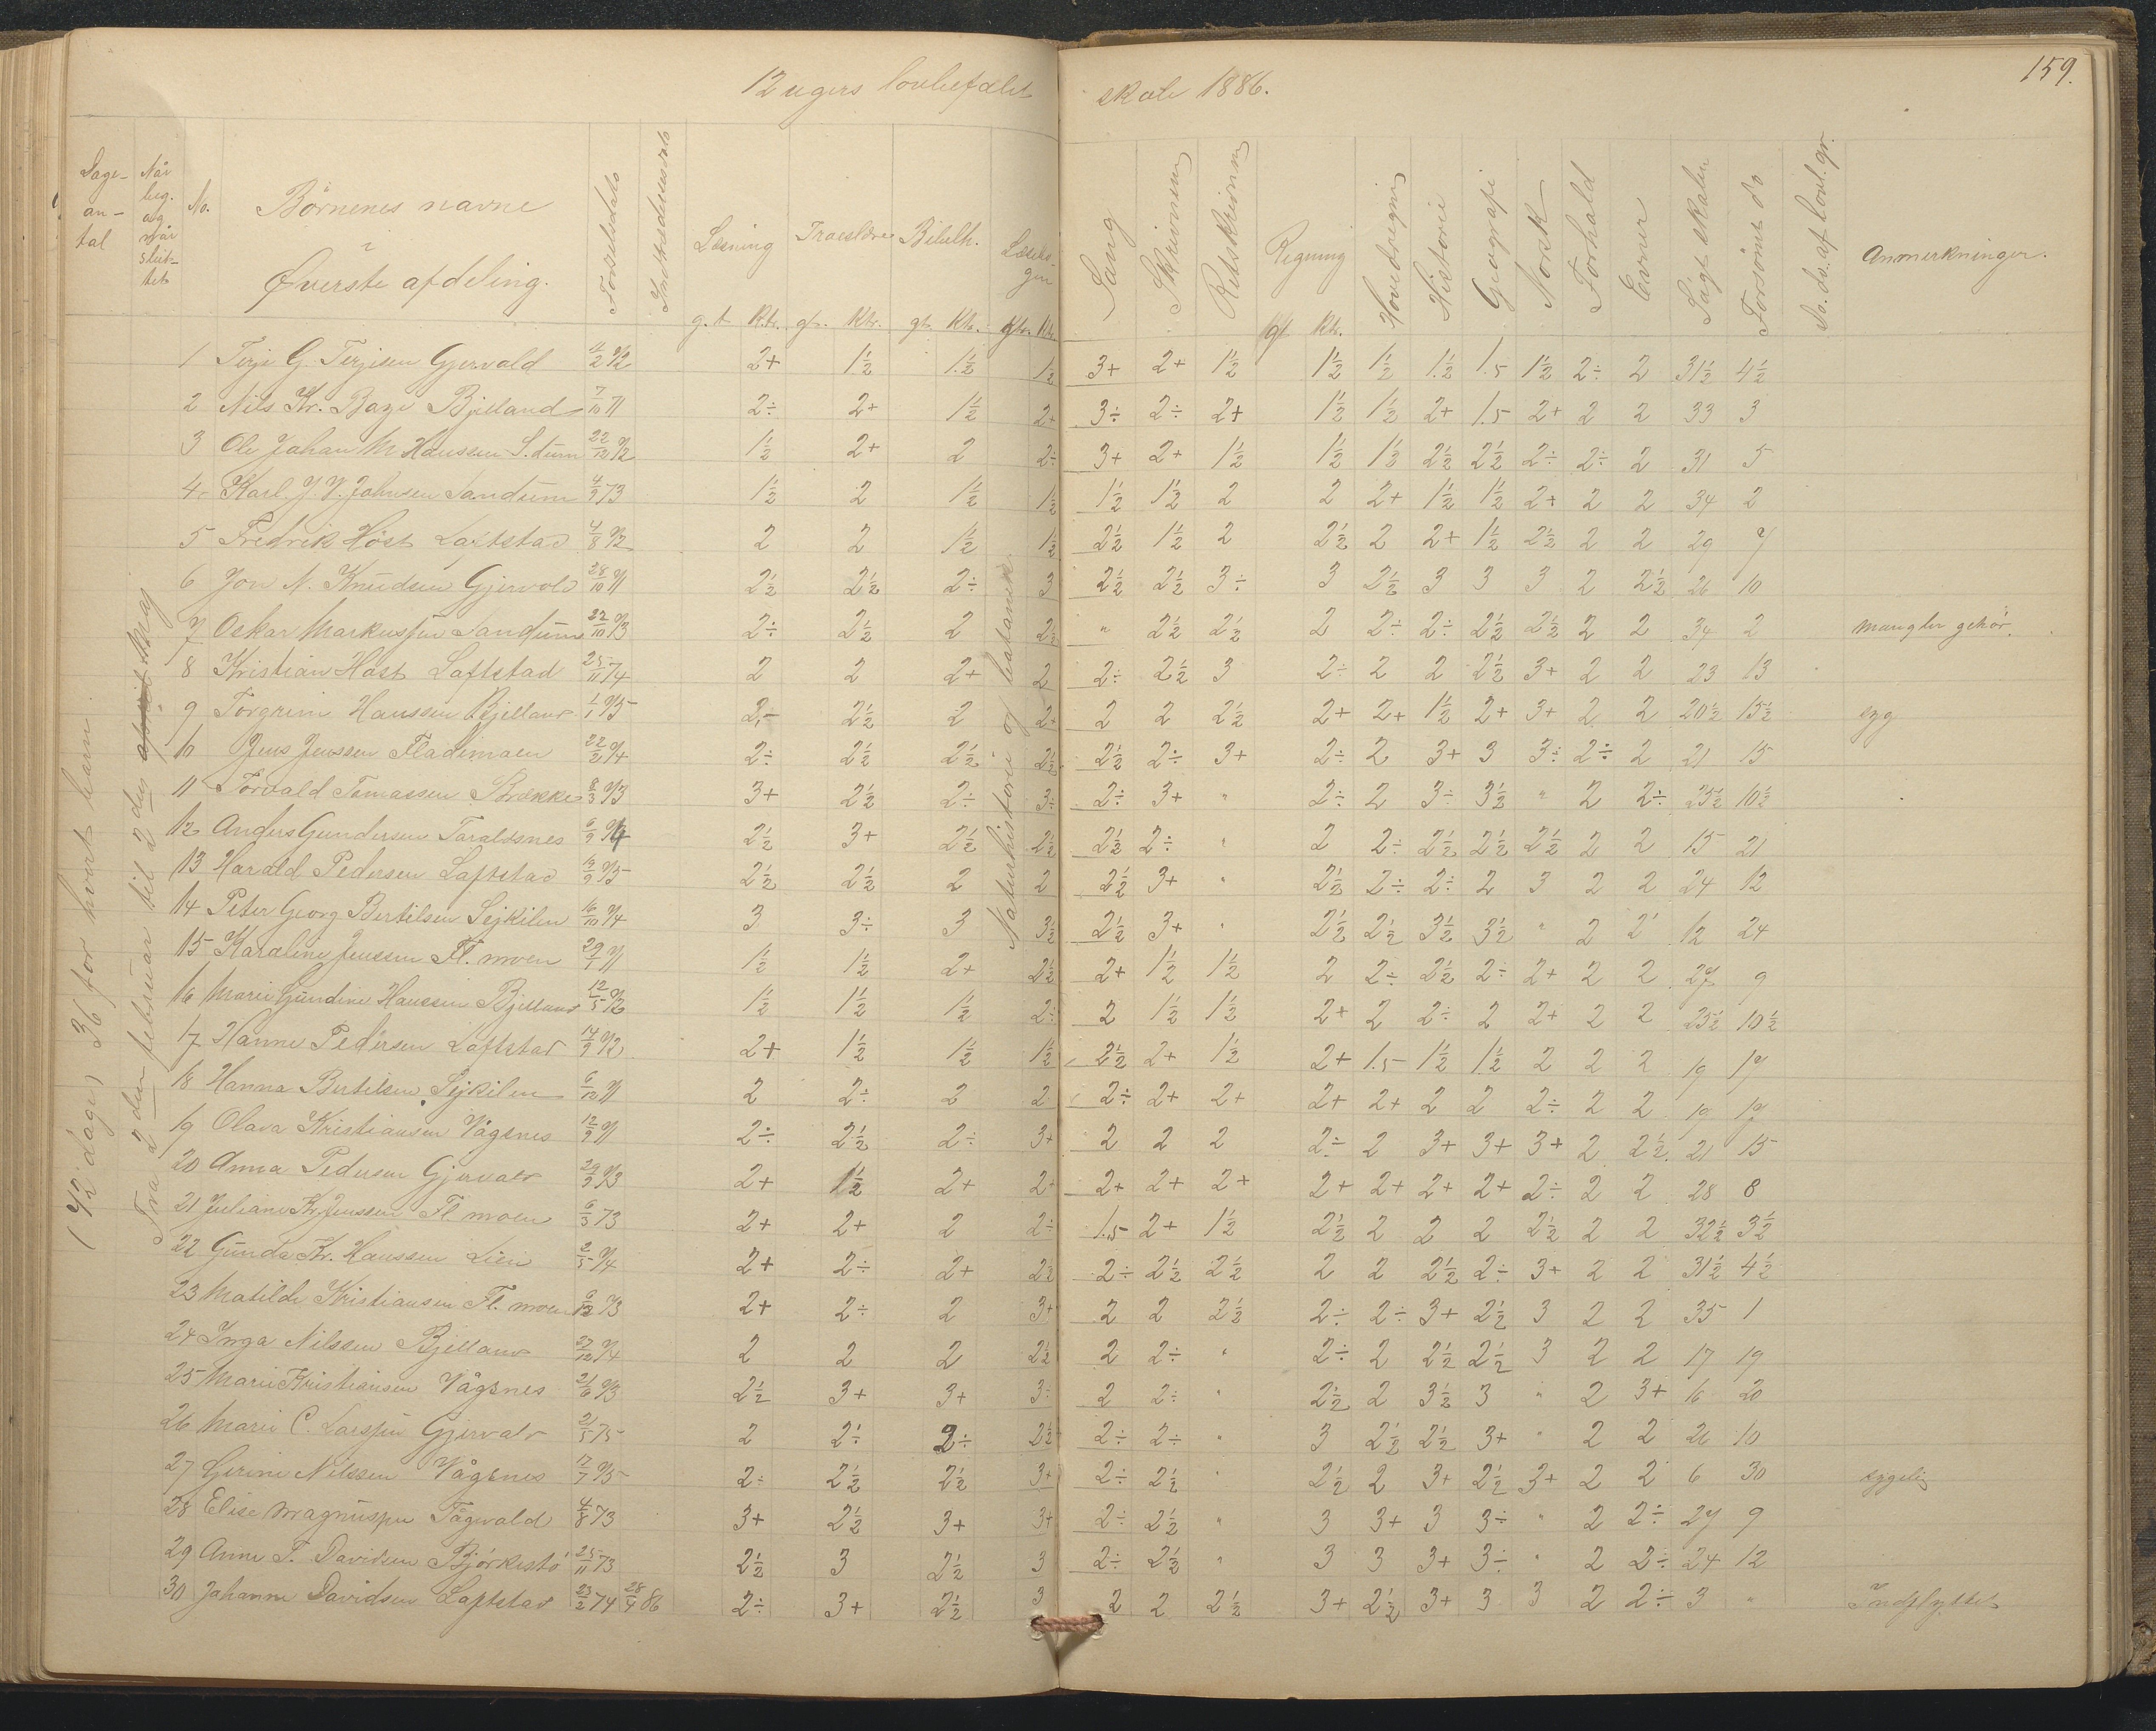 159.
12 ugers lovbefalet skole 1886.
Dage-antal Når beg. og når slut-tet No. Børnenes navne i Øverste afdeling. Fødselsdato Indtrædelsesdato Læsning Troeslære Bibelh. Læsebogen Sang Skrivning Retskrivning Regning Hovedregning Historie Geografi Norsk Forhold Evner Søgt skolen Forsømt do Do. do. af lovl. gr. Anmerkninger.
g.t Ktr. gt. Ktr. gt. Ktr. gt. Ktr. gt Ktr.
(72 dage) 36 for hvert barn.
Fra 2den februar til 2den april Maj
Naturhistorie og botanik
1 Terje G. Terjesen Gjervold 11/2 72 2+ 1½ 1½ 1½ 3+ 2+ 1½ 1½ 1½ 1½ 1.5 1½ 2÷ 2 31½ 4½
2 Nils Kr. Bazi Bjelland 7/10 71 2÷ 2+ 1½ 2+ 3÷ 2÷ 2+ 1½ 1½ 2+ 1.5 2+ 2 2 33 3
3 Ole Johan M Hanssen S.dum 22/12 72 1½ 2+ 2 2÷ 3+ 2+ 1½ 1½ 1½ 2½ 2½ 2÷ 2÷ 2 31 5
4 Karl J. V. Johnsen Sandum 4/9 73 1½ 2 1½ 1½ 1½ 1½ 2 2 2+ 1½ 1½ 2+ 2 2 34 2
5 Fredrik Høst Loftstad 4/8 72 2 2 1½ 1½ 2½ 1½ 2 2½ 2 2+ 1½ 2½ 2 2 29 7
6 Jon N. Knudsen Gjervold 28/10 71 2½ 2½ 2÷ 3 2½ 2½ 3÷ 3 2½ 3 3 3 2 2½ 26 10
7 Oskar Markussen Sandum 22/10 73 2÷ 2½ 2 2½ " 2½ 2½ 2 2÷ 2÷ 2½ 2½ 2 2 34 2 mangler gehør.
8 Kristian Høst Loftstad 25/11 74 2 2 2+ 2 2÷ 2½ 3 2÷ 2 2 2½ 3+ 2 2 23 13
9 Torgrim Hanssen Bjelland 1/1 75 2,- 2½ 2 2+ 2 2 2½ 2+ 2+ 1½ 2+ 3+ 2 2 20½ 15½ syg
10 Jens Jenssen Flademoen 22/2 74 2÷ 2½ 2½ 2½ 2½ 2÷ 3+ 2÷ 2 3+ 3 3÷ 2÷ 2 21 15
11 Torvald Tomassen Brække 8/3 73 3+ 2½ 2÷ 3÷ 2÷ 3+ " 2÷ 2 3÷ 3½ " 2 2÷ 25½ 10½
12 Anders Gundersen Taraldsnes 6/9 74 2½ 3+ 2½ 2½ 2½ 2÷ " 2 2÷ 2½ 2½ 2½ 2 2 15 21
13 Harald Pedersen Loftstad 19/9 75 2½ 2½ 2 2 2½ 3+ " 2½ 2÷ 2÷ 2 3 2 2 24 12
14 Peter Georg Bertilsen Sejkilen 16/10 74 3 3÷ 3 3½ 2½ 3+ " 2½ 2½ 3½ 3½ " 2 2 12 24
15 Karoline Jenssen Fl. moen 29/1 71 1½ 1½ 2+ 2½ 2+ 1½ 1½ 2 2÷ 2½ 2÷ 2+ 2 2 27 9
16 Marie Gundine Hanssen Bjelland 12/5 72 1½ 1½ 1½ 2÷ 2 1½ 1½ 2+ 2 2÷ 2 2+ 2 2 25½ 10½
17 Hanne Pedersen Loftstad 14/9 72 2+ 1½ 1½ 1½ 2½ 2+ 1½ 2+ 1.5 1½ 1½ 2 2 2 19 17
18 Hanna Bertilsen Sejkilen 6/12 71 2 2÷ 2 2 2÷ 2+ 2+ 2+ 2+ 2 2 2÷ 2 2 19 17
19 Olava Kristiansen Vågsnes 12/9 71 2÷ 2½ 2÷ 3+ 2 2 2 2÷ 2 3+ 3+ 3+ 2 2½ 21 15
20 Anna Pedersen Gjervold 29/9 73 2+ 1½ 2+ 2+ 2+ 2+ 2+ 2+ 2+ 2+ 2+ 2÷ 2 2 28 8
21 Juliane Kr. Jenssen Fl moen 6/3 73 2+ 2+ 2 2÷ 1.5 2+ 1½ 2½ 2 2 2 2½ 2 2 32½ 3½
22 Gunda Kr. Hanssen Lien 2/5 74 2+ 2÷ 2+ 2½ 2÷ 2½ 2½ 2 2 2½ 2÷ 3+ 2 2 31½ 4½
23 Matilde Kristiansen Fl. moen 6/12 73 2+ 2÷ 2 3+ 2 2 2½ 2÷ 2÷ 3+ 2½ 3 2 2 35 1
24 Inga Nilssen Bjelland 27/12 74 2 2 2 2½ 2 2÷ " 2÷ 2 2½ 2½ 3 2 2 17 19
25 Marie Kristiansen Vågsnes 21/6 73 2½ 3+ 3+ 3÷ 2 2÷ " 2½ 2 3½ 3 " 2 3+ 16 20
26 Marie C. Larssen Gjervold 21/5 75 2 2÷ 2÷ 2½ 2÷ 2÷ " 3 2½ 2½ 3+ " 2 2 26 10
27 Gerine Nilssen Vågsnes 17/7 75 2÷ 2½ 2½ 3+ 2÷ 2½ " 2½ 2 3+ 2½ 3+ 2 2 6 30 sygelig
28 Elise Magnussen Tågvold 4/8 73 3+ 2½ 3+ 3+ 2÷ 2½ " 3 3+ 3 3÷ " 2 2÷ 27 9
29 Anne T. Davidsen Bjørkestø 25/11 73 2½ 3 2½ 3 2÷ 2½ " 3 3 3+ 3÷ " 2 2÷ 24 12
30 Johanne Davidsen Loftstad 23/2 74 28/4 86 2÷ 3+ 2½ 3 2 2 2½ 3+ 2½ 3+ 3 3 2 2÷ 3 " Indflyttet